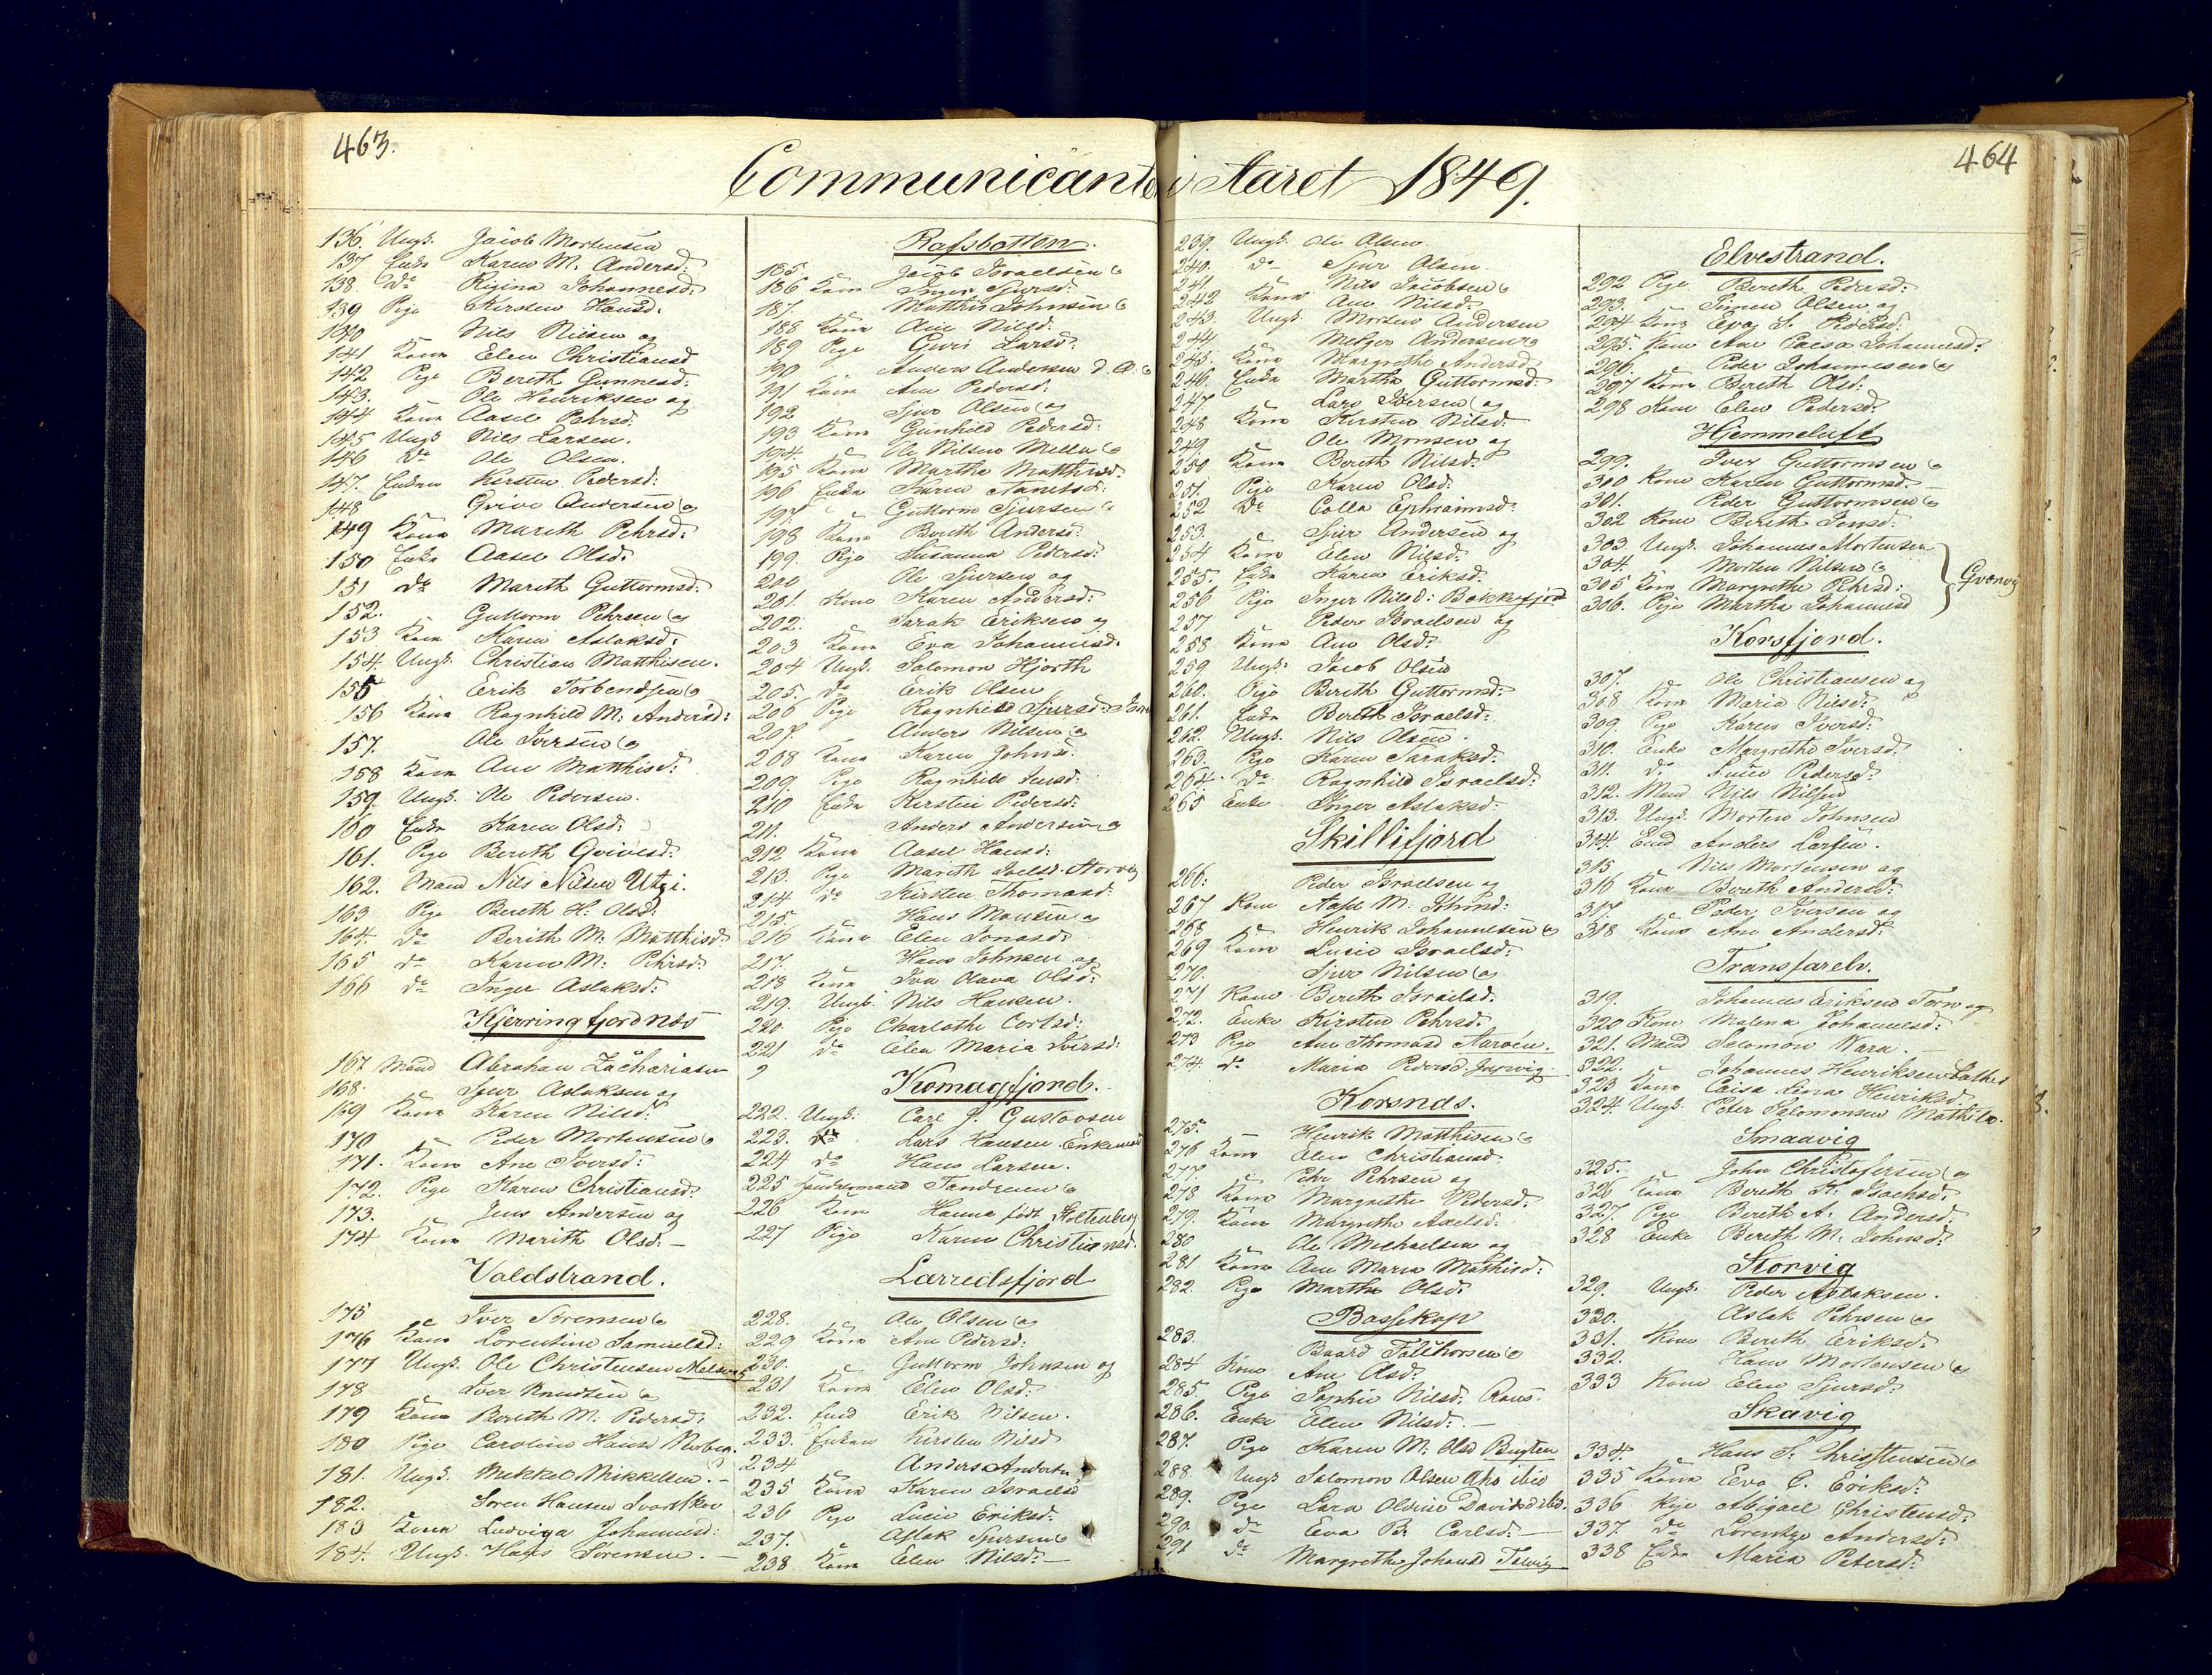 463.
464
Communicanter i Aaret 1849.
136. Ungk. Jacob Mortensen
137 Enke Karen M. Andersd:
138. do Regina Johannesd:
139 Pige Kirsten Hansd:
140 Nils Nilsen og
141 Kone Elen Christiansd
142 Pige Bereth Gunnesd:
143. Ole Henriksen og
144 Kone Aasel Pehrsd:
145 Ungk Nils Larsen.
146 do Ole Olsen.
147. Enken Kirsten Pedersd:
148 Qvive Andersen og
149 Kone Mareth Pehrsd:
150 Enke Aasel Olsd:
151 do Mareth Guttormsd:
152. Guttorm Pehrsen og
153 Kone Karen Aslaksd:
154. Ungk. Christian Matthisen.
155 Erik Torbendsen og
156 Kone Ragnhild M: Andersd:
157. Ole Iversen og
158 Kone Ane Matthisd:
159. Ungk. Ole Pedersen.
160 Enke Karen Olsd:
161. Pige Bereth Qvivesd:
162. Mand Nils Nilsen Utzi.
163 Pige Bereth H: Olsd:
164. do Berith M: Matthisd:
165 do Karen M: Pehrsd:
166 do Inger Aslaksd:
Kjerringfjordnæs
167 Mand Abraham Zachariasen
168. Sjur Aslaksen og
169 Kone Karen Nilsd:
170 Peder Mortensen og
171. Kone Ane Iversd:
172. Pige Karen Christiansd:
173. Jens Andersen og
174 Kone Marith Olsd: —
Valdstrand.
175 Iver Sørensen og
176 Kone Lorentine Samuelsd:
177 Ungk. Ole Christensen Melsvig
178 Iver Knudsen og
179 Kone Bereth M: Pedersd:
180 Pige Caroline Hansd
181. Ungk. Mikkel Mikkelsen. —
182. Søren Hansen Svartskov
183 Kone Ludviga Johannesd:
184. Ungk. Hans Sørensen. —
Rafsbotten.
185. Jacob Israelsen og
186 Kone Inger Sjursd:
187. Matthis Johnsen og
188 Kone Ane Nilsd:
189 Pige Guri Larsd:
190 Anders Andersen d. A. og
191 Kone Ane Pedersd:
192 Sjur Olsen og
193 Kone Gunhild Pedersd:
194. Ole Nilsen Mella og
195 Kone Martha Matthisd:
196 Enke Karen
197. Guttorm Sjursen og
198 Kone Bereth Andersd:
199. Pige Susanna Pedersd:
200 Ole Sjursen og
201. Kone Karen Andersd:
202. Sarak Eriksen og
203 Kone Eva Johannesd:
204 Ungk. Salomon Hjorth
205. do Erik Olsen
206 Pige Ragnhild Sjursd:
207. Anders Nilsen og
208 Kone Karen Johnsd:
209. Pige Ragnhild Jensd:
210 Enke Kirsten Pedersd:
211. Anders Andersen og
212 Kone Aasel Hansd:
213. Pige Mareth Joelsd: Storvig
214 do Kirsten Thomasd:
215 Hans Monsen og
216 Kone Elen Jonasd:
217. Hans Johnsen og
218 Kone Iva Olava Olsd:
219. Ungk. Nils Hansen.
220 Pige Charlothe Carlsd:
221 do Elen Maria Iversd:
Komagfjord.
222. Ungk: Carl J. Gustavsen
223. do Lars Hansen Enkemand
224 do Hans Larsen.
225 Handelsmand Tandrenen og
226 Kone Hanna født Holtenberg
227 Pige Karen Christiansd:
Lærredsfjord
228. Ole Olsen og
229 Kone Ane Pedersd:
230. Guttorm Johnsen og
231 Kone Elen Olsd:
232. Erik Nilsen.
233. Enken Kirsten Nilsd
234 Anders Anders
235 Kone Karen Israelsd
236 Pige Lucie Eriksd:
237. Aslak Sjursen og
238 Kone Elen Nilsd: —
239. Ungk. Ole Olsen.
240. do Sjur Olsen.
241. Nils Jacobsen og
242 Kone Ane Nilsd:
243 Ungk. Morten Andersen
244 Melger Andersen og
245. Kone Margrethe Andersd
246. Enke Martha Guttormsd:
247. Lars Iversen og
248 Kone Kirsten Nilsd:
249. Ole Monsen og
250 Kone Bereth Nilsd:
251. Pige Karen Olsd:
252 do Colla Ephraimsd:
253. Sjur Andersen og
254 Kone Elen Nilsd:
255. Enke Karen Eriksd:
256 Pige Inger Nilsd: Bekkefjord
257 Peder Israelsen og
258 Kone Ane Olsd:
259 Ungk: Jacob Olsen
260. Pige Bereth Guttormsd:
261. Enke Bereth Israelsd:
262. Ungk. Nils Olsen.
263. Pige Karen Saraksd:
264. do Ragnhild Israelsd:
265 Enke Inger Aslaksd:
Skillifjord
266: Peder Israelsen og
267 Kone M.
268 Henrik Johannesen og
269 Kone Lucie Israelsd:
270. Sjur Nilsen og
271 Kone Bereth Israelsd:
272. Enke Kirsten Pehrsd:
273 Pige Ane Thomasd Aarøen.
274. do Maria Pedersd.
Korsnæs.
275. Henrik Matthisen og
276 Kone Elen Christiansd:
277. Pehr Pehrsen og
278 Kone Margrethe Pedersd:
279. Kone Margrethe Axelsd:
280 Ole Michaelsen og
281 Kone Ane Maria Mathisd:
282. Pige Martha Olsd:
Bossekop
283. Baard Tollhorsen og
284 Kone Ane Olsd:
285. Pige Sophie Nilsd:
286. Enke Elen Nilsd: —
287. Pige Karen M: Olsd Bugten
288. Ungk Salomon Olsen ibid
289. Pige Lava Oldine Davidsd ibd.
290. do Eva B. Carlsd: —
291 do Margrethe Johansd Talvig
Elvestrand.
292 Pige Bereth Pedersd:
293. Simen Olsen og
294 Kone Eva S. Pedersd:
295. Kone Ane Caisa Johannesd:
296. Peder Johannesen og
297 Kone Bereth Olsd:
298 Kone Elen Pedersd:
Hjemmeluft
299. Iver Guttormsen og
300 Kone Karen Guttormsd. —
301. Peder Guttormsen og
302 Kone Bereth Jonsd:
303 Ungk. Johannes Mortensen
304. Morten Nilsen og
305 Kone Margrethe Pehrsd:
306. Pige Martha Johannesd
Qvænvig
Korsfjord.
307. Ole Christiansen og
308 Kone Maria Nilsd:
309. Pige Karen Iversd:
310. Enke Margrethe Iversd:
311. do Lucie Pedersd:
312. Mand Nils Nilsen
313. Ungk. Morten Johnsen
314. Anders Larsen.
315 Nils Mortensen og
316 Kone Bereth Andersd:
317. Peder Iversen og
318 Kone Ane Andersd:
Transfarelv.
319. Johannes Eriksen Torn og
320 Kone Malena Johannesd:
321. Mand Salomon Wara. —
322. Johannes Henriksen
323 Kone Caisa Lena Henriksd.
324. Ungk. Peter Salomonsen Mathiselv.
Smaavig
325. John Christofersen og
326 Kone Bereth K. Isachsd:
327. Pige Bereth A. Andersd:
328 Enke Bereth M. Johnsd:
Storvig
329. Ungk. Peder Aslaksen.
330. Aslak Pehrsen og
331. Kone Bereth Eriksd:
332. Hans Mortensen og
333 Kone Elen Sjursd:
Skavig
334. Hans S. Christensen og
335 Kone Eva C. Eriksd:
336 Pige Abigael Christensd:
337. do Lorentze Andersd:
338 Enke Maria Petersd: